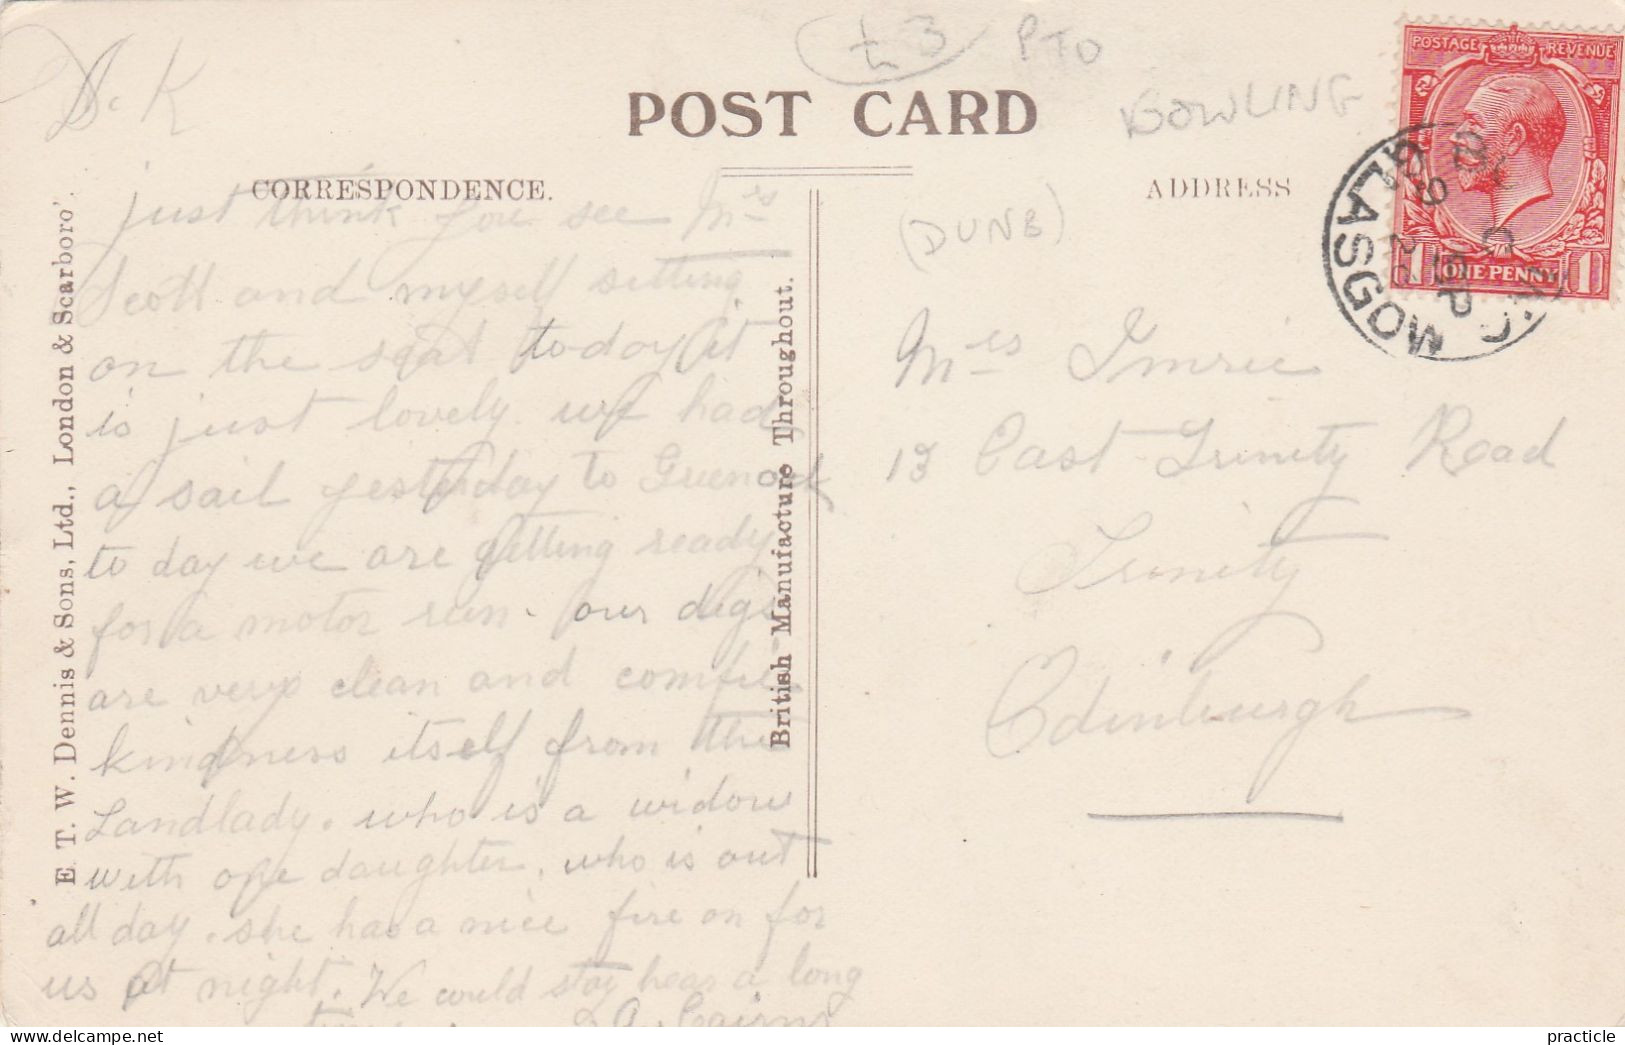 £3 PTO
BOWLING
POST CARD
CORRESPONDENCE.
ADDRESS
(DUNB)
POSTAGE REVENUE
1 ONE PENNY 1
GLASGOW
SP
E. T. W. Dennis & Sons, Ltd., London & Scarboro'.
British Manufacture Throughout.
D. K
just think you see Mrs
Scott and myself sitting
on the seat today it
is just lovely we had
a sail yesterday to Guenock
to day we are getting ready
for a motor run. our digs
are very clean and comfie
kindness itself from the
Landlady. who is a widow
with one daughter. who is out
all day. she has a nice fire on for
us at night. We could stay hear a long
time A. Cairns
Mrs Imrie
13 East Trinity Road
Trinity
Edinburgh
delcampe.net
practicle